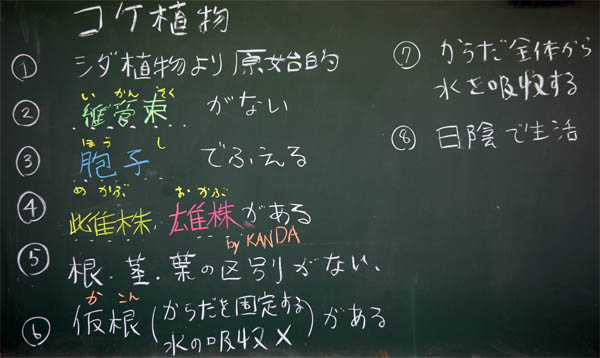 コケ植物
① シダ植物より原始的
い かん そく
② 維管束 がない
ほう し
③ 胞子 でふえる
め かぶ お かぶ
④ 雌株, 雄株がある
by KANDA
⑤ 根・茎・葉の区別がない、
か こん
⑥ 仮根(からだを固定する 水の吸収×)がある
⑦ からだ全体から
水を吸収する
⑧ 日陰で生活